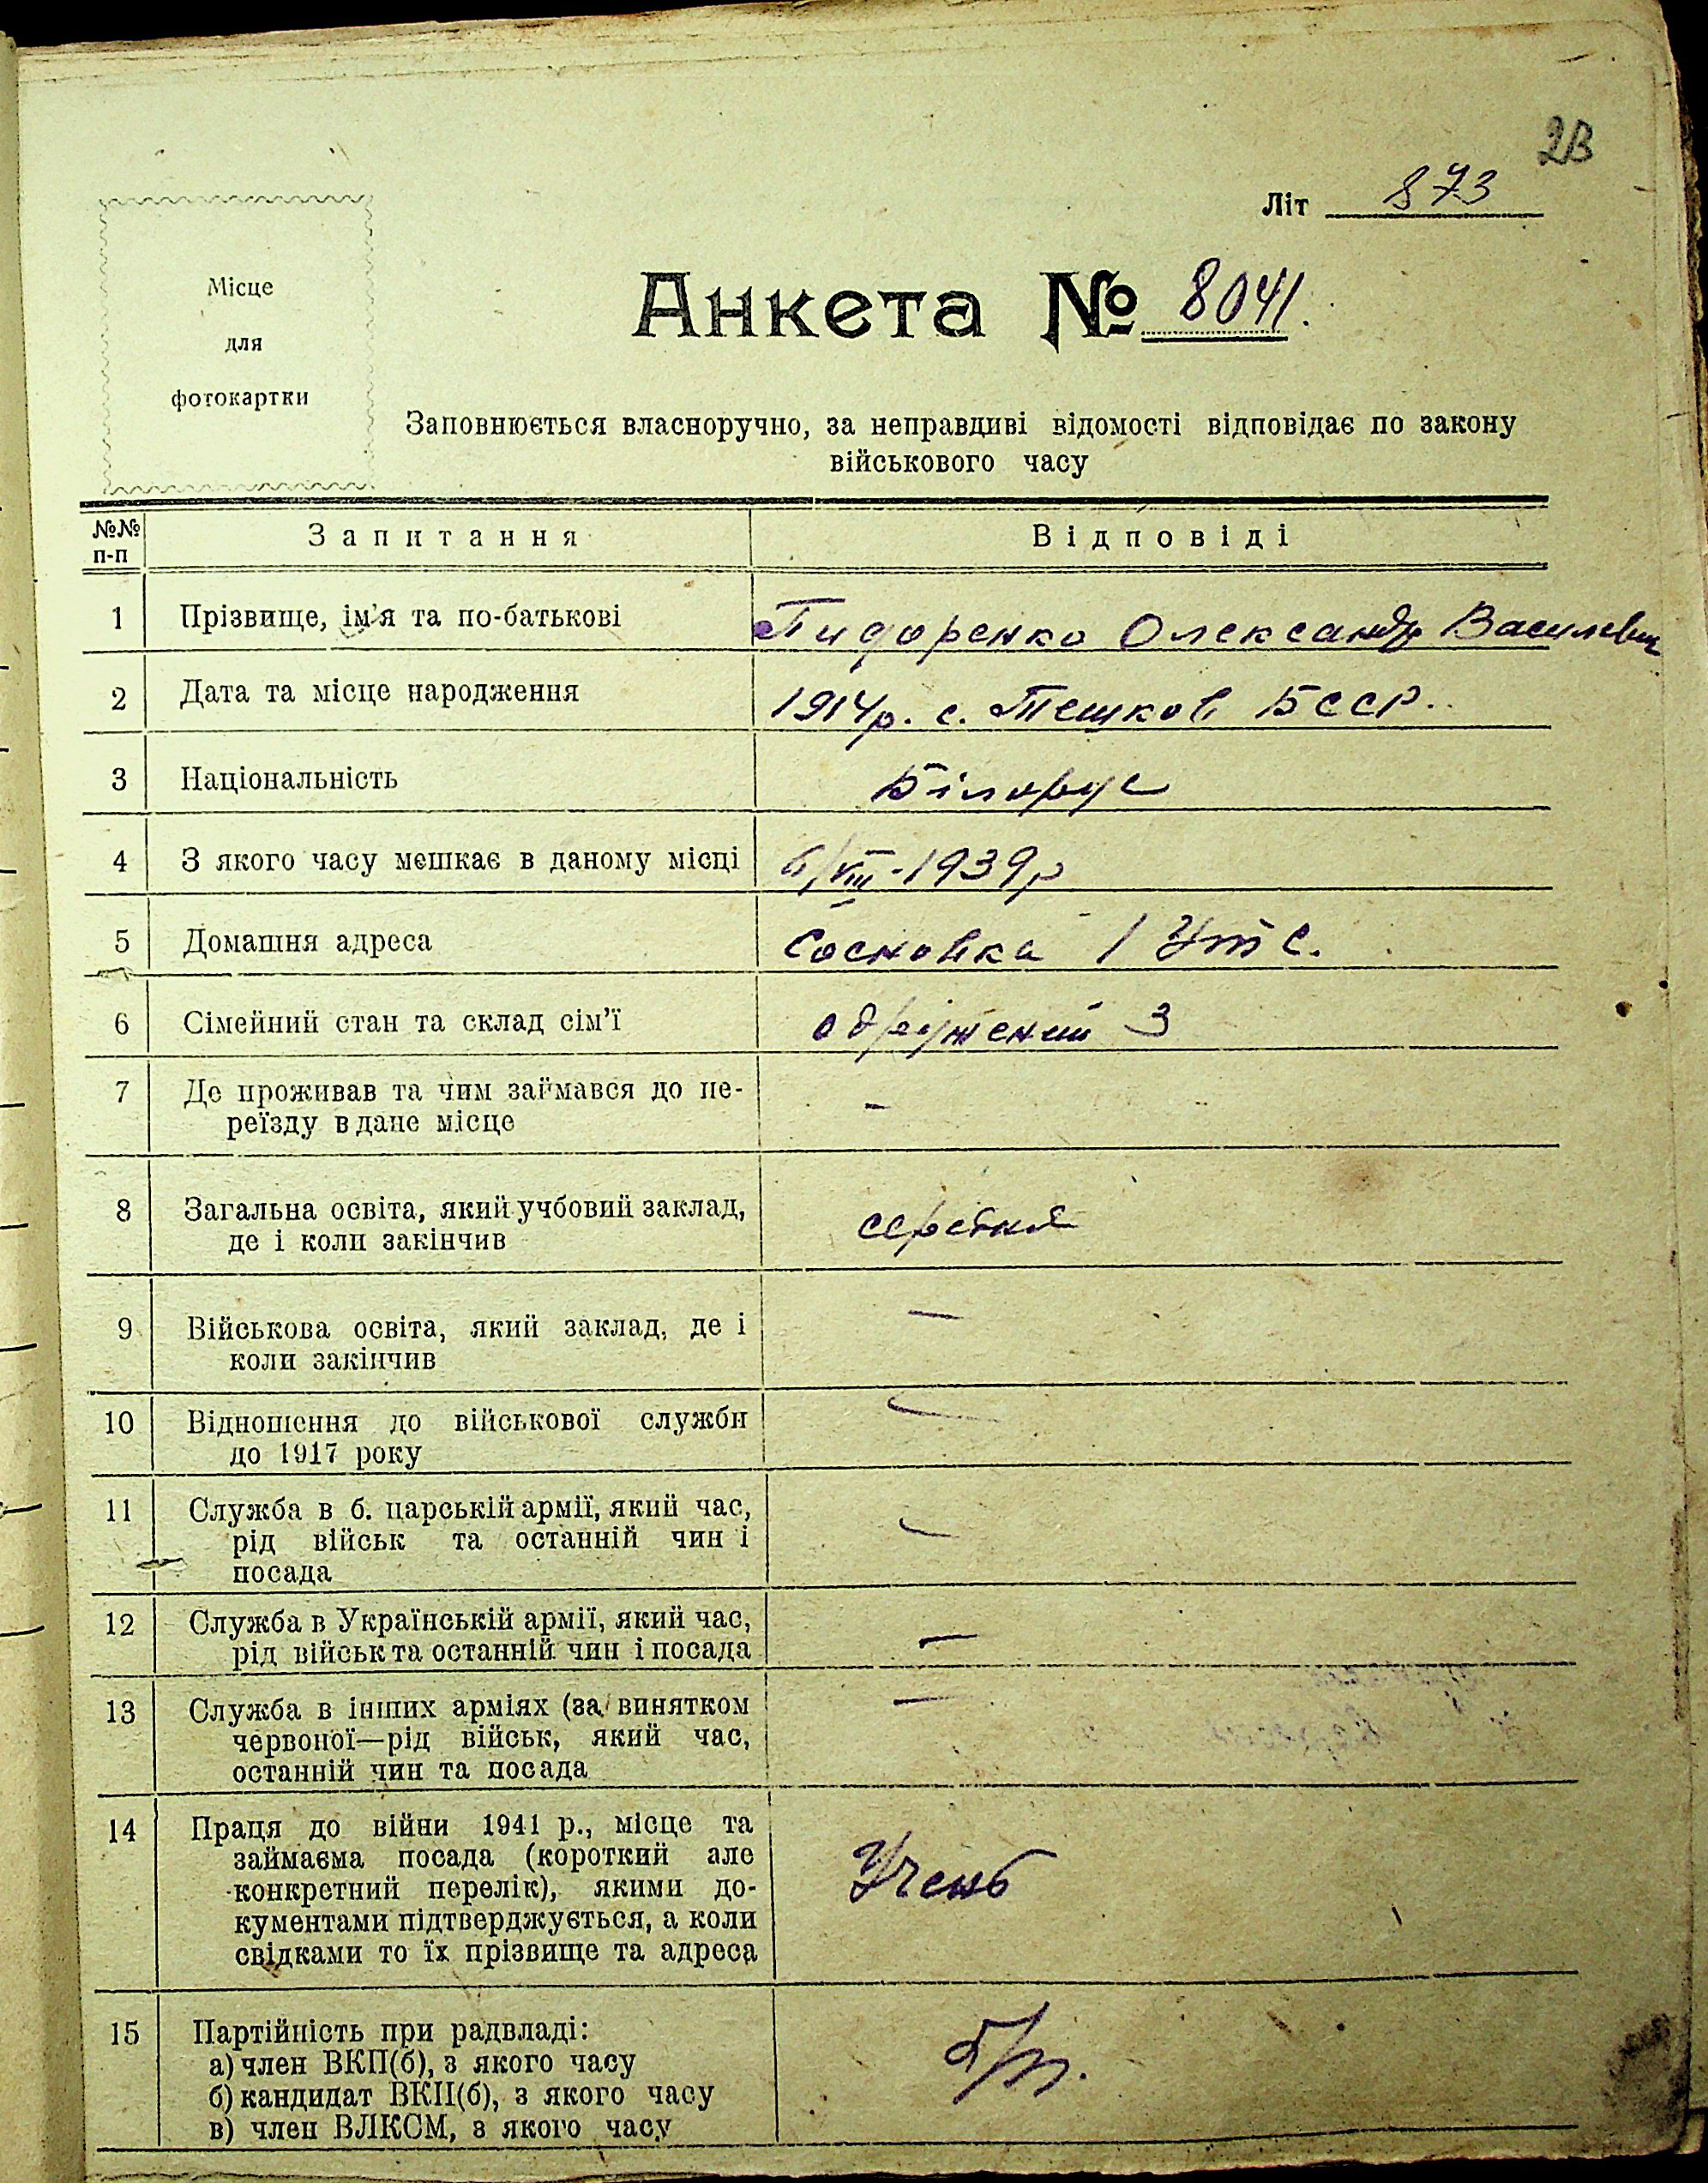 23
Літ 873
Місце
для
фотокартки
Анкета № 8041.
Заповнюється власноручно, за неправдиві відомості відповідає по закону
військового часу
№№
п-п
Запитання
Відповіді
1 Прізвище, ім'я та по-батькові
Олександр Василевич
2 Дата та місце народження
1914 р. с. БССР.
3 Національність
Білорус
4 З якого часу мешкає в даному місці
6/VIII-1939 р
5 Домашня адреса
Сосновка 1
6 Сімейний стан та склад сім'ї
одружений 3
7 Де проживав та чим займався до пе-
реїзду в дане місце
–
8 Загальна освіта, який учбовий заклад,
де і коли закінчив
середня
9 Військова освіта, який заклад, де і
коли закінчив
—
10 Відношення до військової служби
до 1917 року
—
11 Служба в б. царській армії, який час,
рід військ та останній чин і
посада
—
12 Служба в Українській армії, який час,
рід військ та останній чин і посада
—
13 Служба в інших арміях (за винятком
червоної—рід військ, який час,
останній чин та посада
—
14 Праця до війни 1941 р., місце та
займаєма посада (короткий але
конкретний перелік), якими до-
кументами підтверджується, а коли
свідками то їх прізвище та адреса
Учень
15 Партійність при радвладі:
а) член ВКП(б), з якого часу
б) кандидат ВКП(б), з якого часу
в) член ВЛКСМ, з якого часу
б/п.